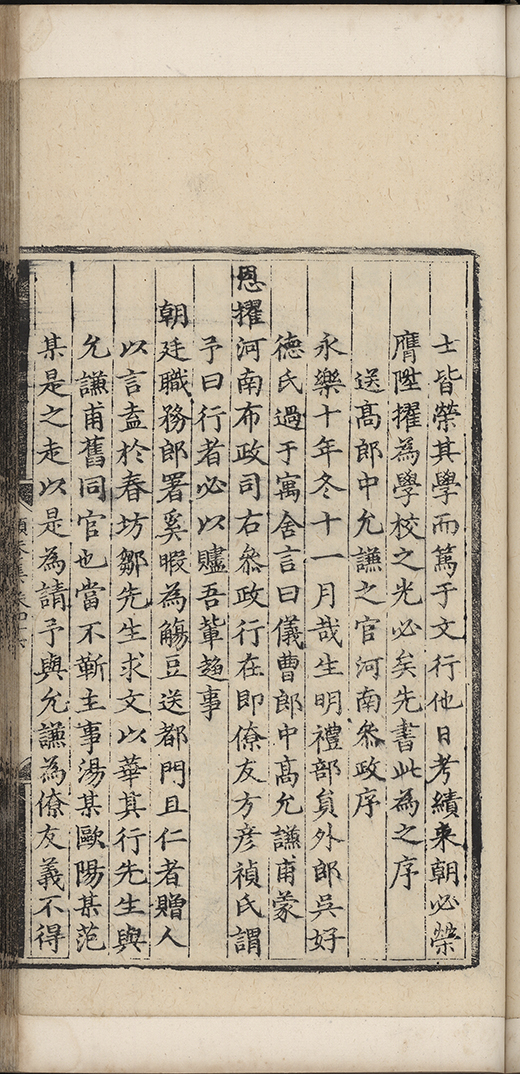 士皆榮其學而篤于文行他日考績來朝必榮
膺陞擢為學校之光必矣先書此為之序
送髙郎中允謙之官河南叅政序
永樂十年冬十一月哉生明禮部貟外郎吳好
德氏過于寓舍言曰儀曹郎中髙允謙甫蒙
恩擢河南布政司右叅政行在即僚友方彦禎氏謂
予曰行者必以贐吾軰趍事
朝廷職務郎署奚暇為觴豆送都門且仁者贈人
以言盍於春坊鄒先生求文以華其行先生與
允謙甫舊同官也當不靳主事湯某歐陽某范
某是之走以是為請予與允謙為僚友義不得